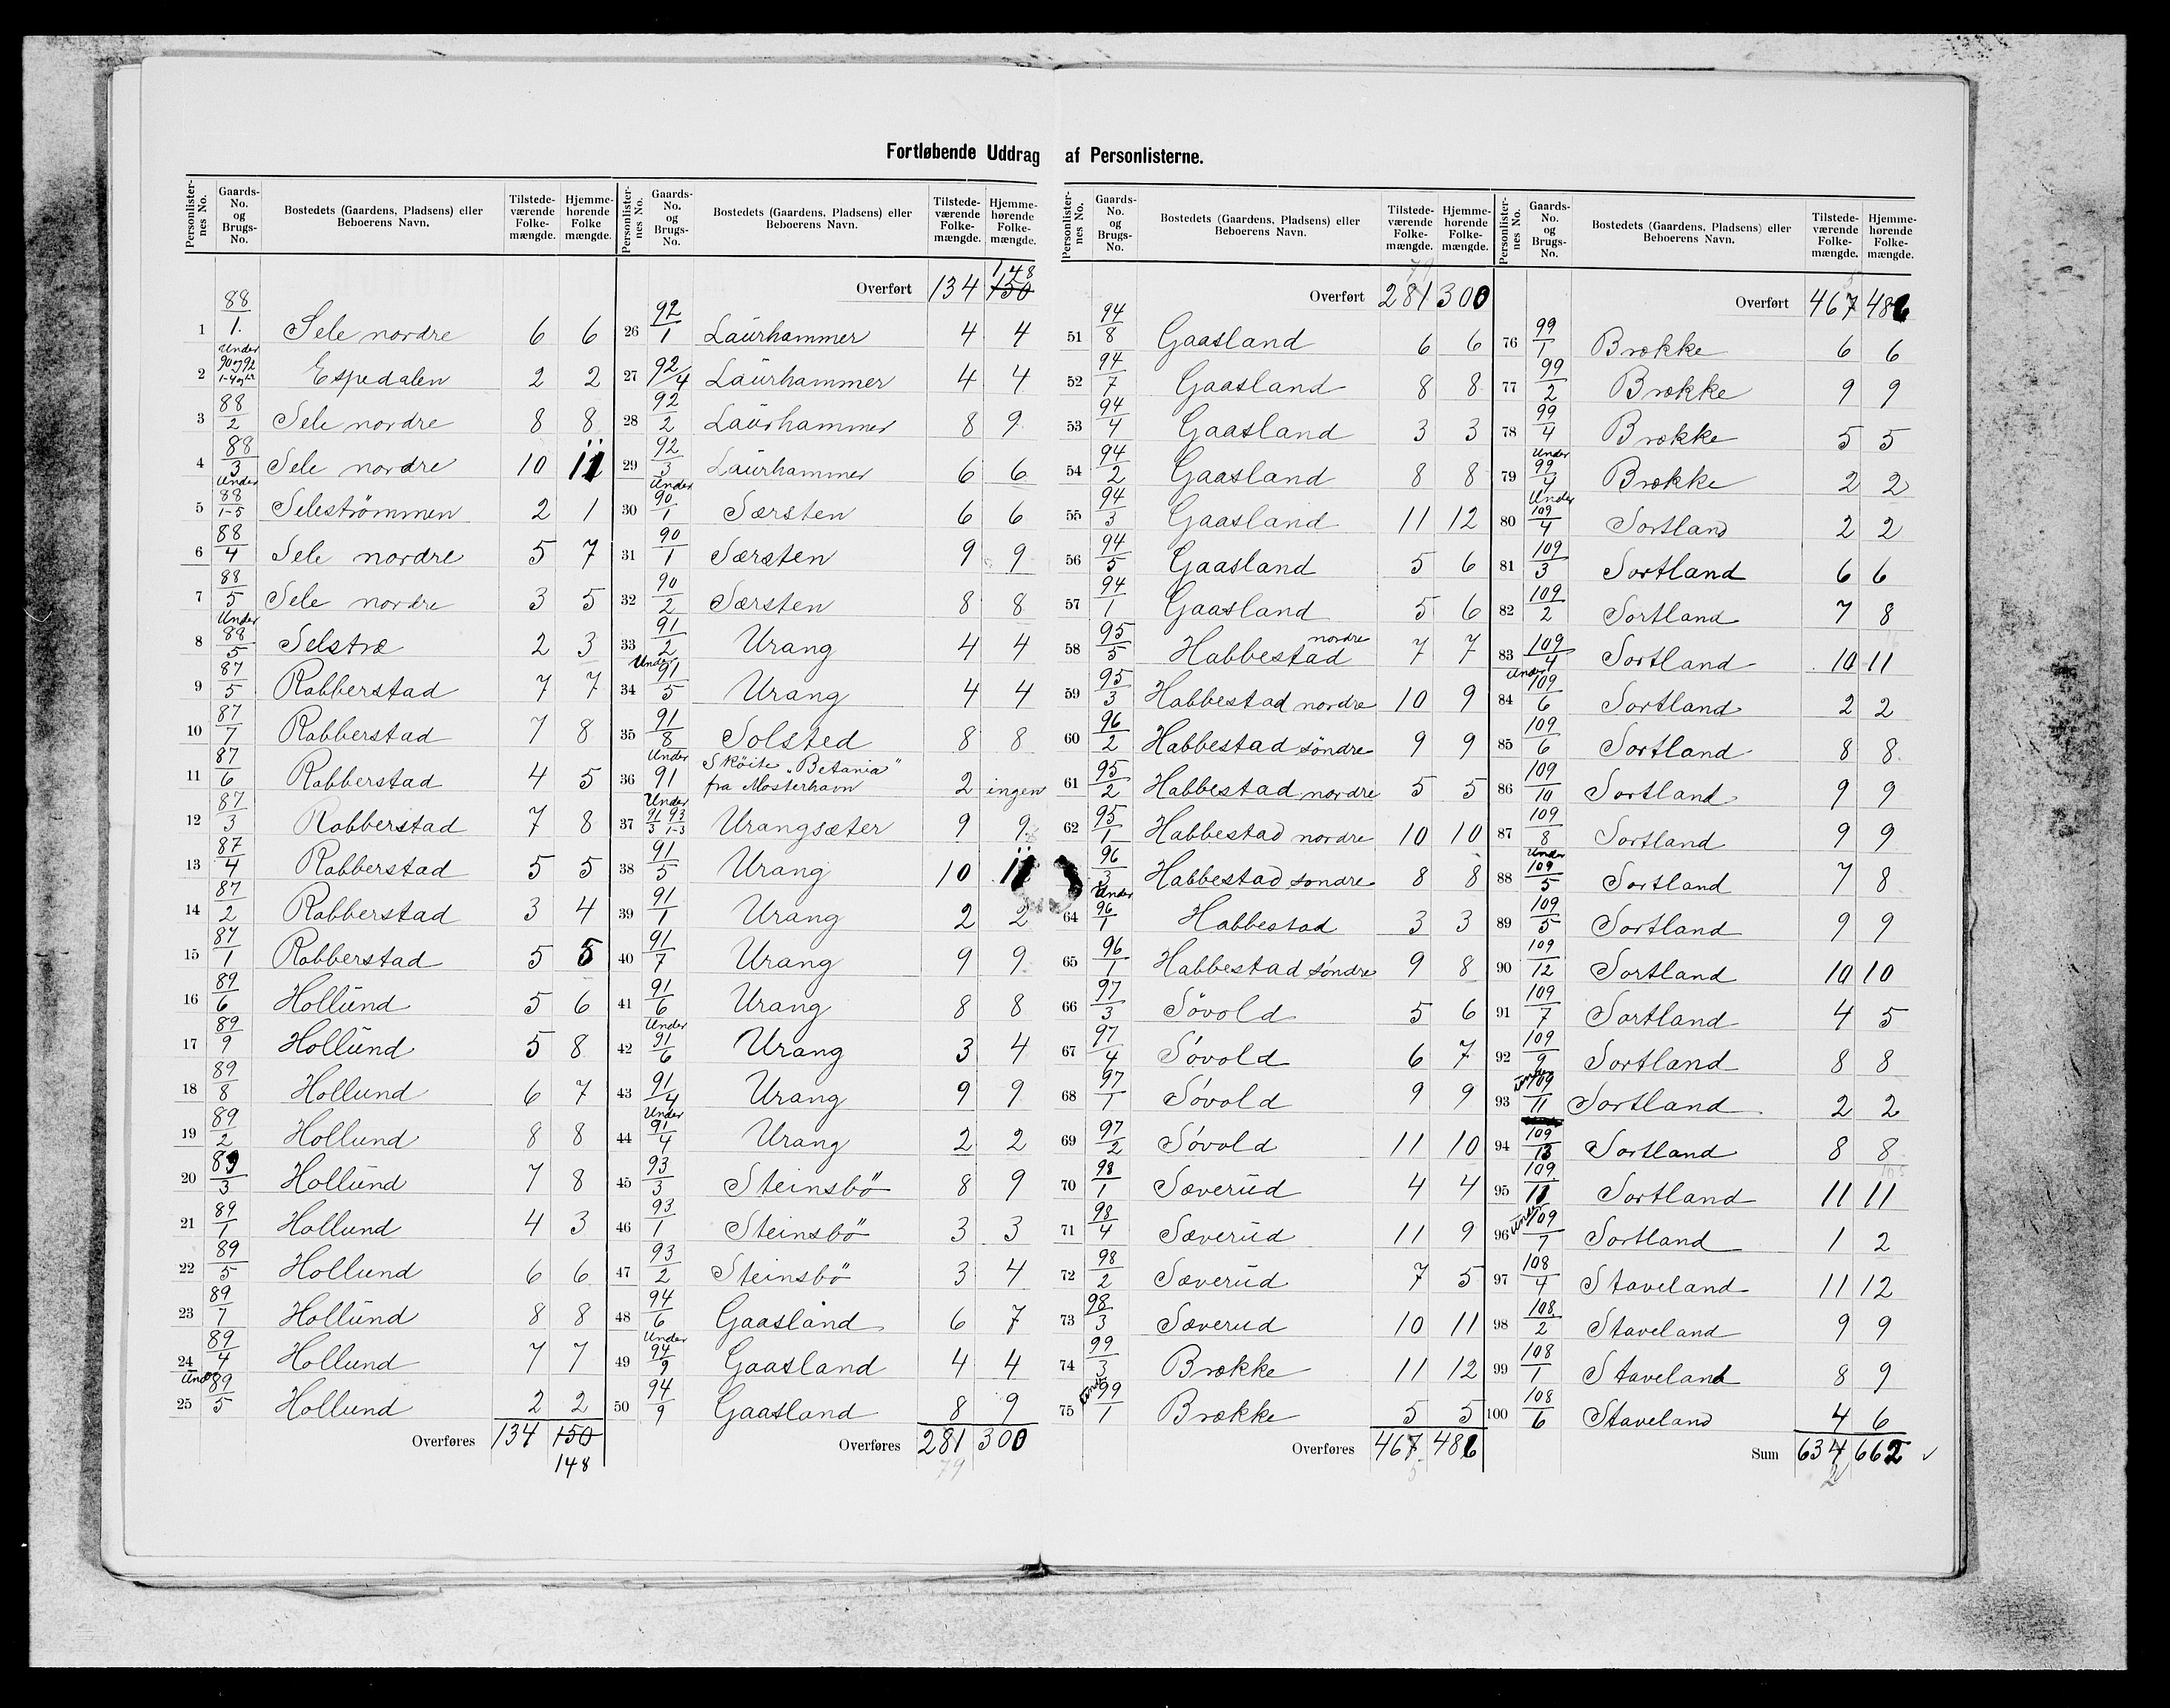 Fortløbende Uddrag af Personlisterne.
Personlisternes No. Gaards-No. og Brugs-No. Bostedets (Gaardens, Pladsens) eller Beboerens Navn. Tilstedeværende Folkemængde. Hjemmehørende Folkemængde.
1 88/1. Sele nordre 6 6
2 Under 90 og 92 Espedalen 2 2
3 88/2 Sele nordre 8 8
4 88/3 Sele nordre 10 11
5 Under 88/1-5 Seleströmmen 2 1
6 88/4 Sele nordre 5 7
7 88/5 Sele nordre 3 5
8 Under 88/5 Selstræ 2 3
9 87/5 Rabberstad 7 7
10 87/7 Rabberstad 7 8
11 87/6 Rabberstad 4 5
12 87/3 Rabberstad 7 8
13 87/4 Rabberstad 5 5
14 87/2 Rabberstad 3 4
15 87/1 Rabberstad 5 5
16 89/6 Hollund 5 6
17 89/9 Hollund 5 8
18 89/8 Hollund 6 7
19 89/2 Hollund 8 8
20 89/3 Hollund 7 8
21 89/1 Hollund 4 3
22 89/5 Hollund 6 6
23 89/7 Hollund 8 8
24 89/4 Hollund 7 7
25 Under 89/5 Hollund 2 2
Overføres 134 150
148
Personlisternes No. Gaards-No. og Brugs-No. Bostedets (Gaardens, Pladsens) eller Beboerens Navn. Tilstedeværende Folkemængde. Hjemmehørende Folkemængde.
148
Overført 134 150
26 92/1 Laurhammer 4 4
27 92/4 Laurhammer 4 4
28 92/2 Laurhammer 8 9
29 92/3 Laurhammer 6 6
30 Under 90/1 Særsten 6 6
31 90/1 Særsten 9 9
32 90/2 Særsten 8 8
33 91/2 Urang 4 4
34 Under 91/5 Urang 4 4
35 91/8 Solsted 8 8
36 Under 91 Sköite "Betania"
fra Mosterhavn 2 ingen
37 Under 91/3 93/1-3 Urangsæter 9 9
38 91/5 Urang 10 11
39 91/1 Urang 2 2
40 91/7 Urang 9 9
41 91/6 Urang 8 8
42 Under 91/6 Urang 3 4
43 91/4 Urang 9 9
44 Under 91/4 Urang 2 2
45 93/3 Steinsbö 8 9
46 93/1 Steinsbö 3 3
47 93/2 Steinsbö 3 4
48 94/6 Gaasland 6 7
49 Under 94/9 Gaasland 4 4
50 94/9 Gaasland 8 9
Overføres 281 300
79
Personlisternes No. Gaards-No. og Brugs-No. Bostedets (Gaardens, Pladsens) eller Beboerens Navn. Tilstedeværende Folkemængde. Hjemmehørende Folkemængde.
79
Overført 281 300
51 94/8 Gaasland 6 6
52 94/7 Gaasland 8 8
53 94/4 Gaasland 3 3
54 94/2 Gaasland 8 8
55 94/3 Gaasland 11 12
56 94/5 Gaasland 5 6
57 94/1 Gaasland 5 6
58 95/5 Habbestad nordre 7 7
59 95/3 Habbestad nordre 10 9
60 96/2 Habbestad söndre 9 9
61 95/2 Habbestad nordre 5 5
62 95/1 Habbestad nordre 10 10
96/3 Habbestad sondre 8 8
64 Under 96/1 Habbestad 3 3
65 96/1 Habbestad söndre 9 8
66 97/3 Sövold 5 6
67 97/4 Sövold 6 7
68 97/1 Sövold 9 9
69 97/2 Sövold 11 10
70 98/1 Sæverud 4 4
71 98/4 Sæverud 11 9
72 98/2 Sæverud 7 5
73 98/3 Sæverud 10 11
74 99/3 Brække 11 12
75 Under 99/1 Brække 5 5
Overføres 467 486
5
Personlisternes No. Gaards-No. og Brugs-No. Bostedets (Gaardens, Pladsens) eller Beboerens Navn. Tilstedeværende Folkemængde. Hjemmehørende Folkemængde.
5
Overført 467 486
76 99/1 Brække 6 6
77 99/2 Brække 9 9
78 99/4 Brække 5 5
79 Under 99/4 Brække 2 2
80 Under 109/4 Sortland 2 2
81 109/3 Sortland 6 6
82 109/2 Sortland 7 8
83 109/4 Sortland 10 11
84 Under 109/6 Sortland 2 2
85 109/6 Sortland 8 8
86 109/10 Sortland 9 9
87 109/8 Sortland 9 9
88 Under 109/5 Sortland 7 8
89 109/5 Sortland 9 9
90 109/12 Sortland 10 10
91 109/7 Sortland 4 5
92 109/9 Sortland 8 8
93 Under 109/11 Sortland 2 2
94 109/13 Sortland 8 8
95 109/11 Sortland 11 11
96 Under 109/7 Sortland 1 2
97 108/4 Staveland 11 12
98 108/2 Staveland 9 9
99 108/1 Staveland 8 9
100 108/6 Staveland 4 6
Sum 634 662 ✓
2